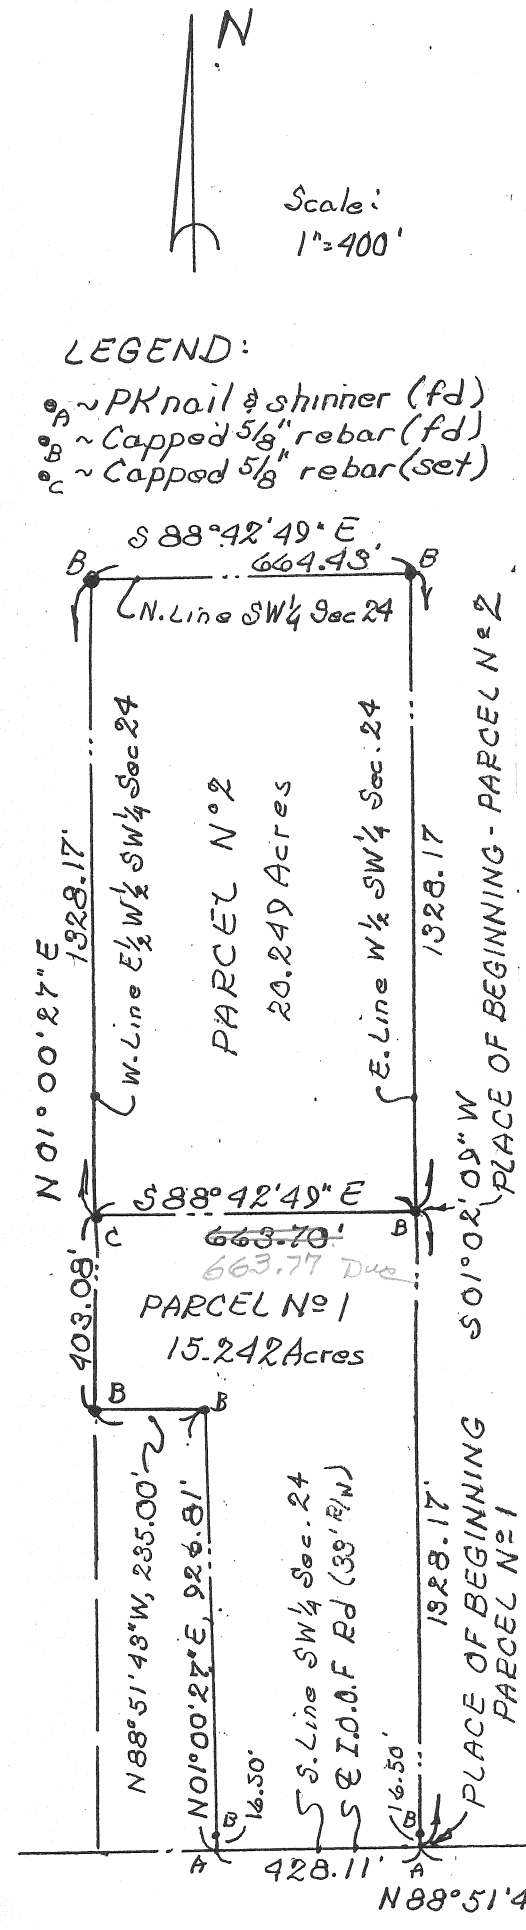 N
Scale:
1"=400'
LEGEND:
A ~ PK nail & shinner (fd)
B ~ Capped 5/8" rebar (fd)
C ~ Capped 5/8" rebar (set)
S 88°42'49" E
664.43'
B
B
N. Line SW¼ Sec 24
W. Line E½ W½ SW¼ Sec 24
PARCEL Nº 2
20.249 Acres
E. Line W½ SW¼ Sec. 24
1328.17'
1328.17
N 01°00'27" E
PLACE OF BEGINNING - PARCEL Nº 2
S 01°02'09" W
S 88°42'49" E
C
B
663.70'
663.77 Due
403.08'
PARCEL Nº 1
15.242 Acres
B
B
N88°51'43"W, 235.00'
N01°00'27"E, 926.81'
S. Line SW¼ Sec. 24
℄ I.O.O.F Rd (33' R/W)
1328.17'
PLACE OF BEGINNING
PARCEL Nº 1
B
16.50'
16.50'
B
A
428.11'
A
N88°51'4